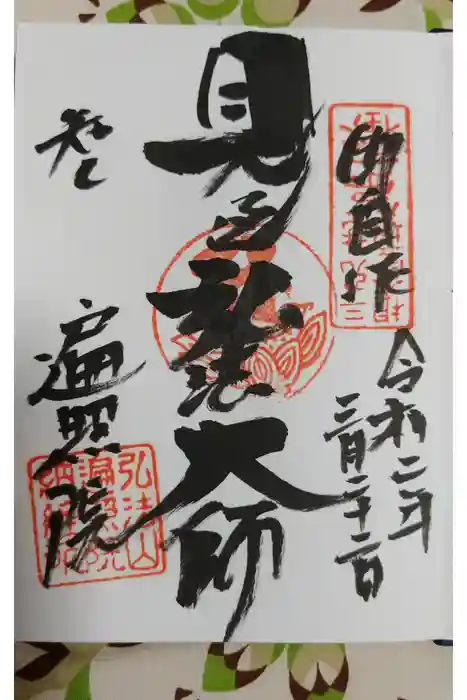 御自作
令和二年
三月二十二日
見返弘法大師
知立
遍照院
弘法山
遍照院